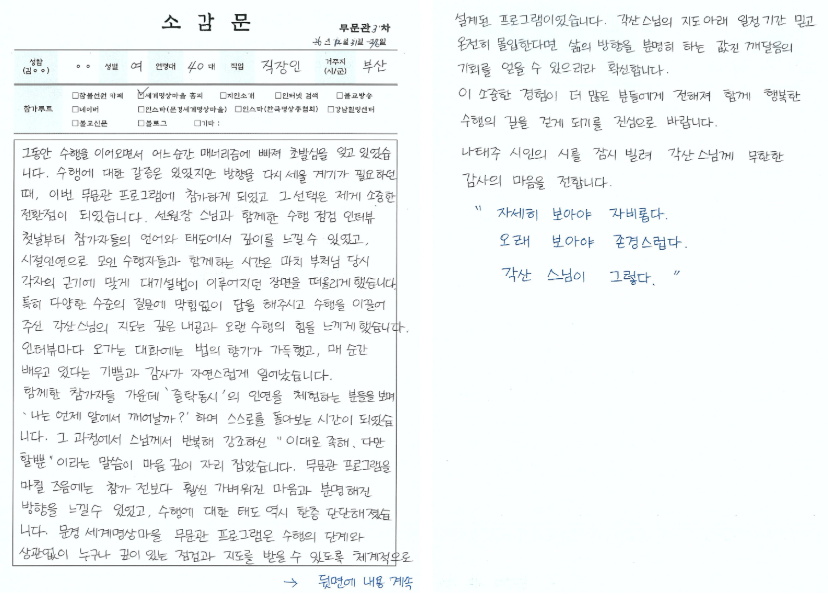 소 감 문
무문관 3차
성함
(김○○)
○ ○
성별
여
연령대
40대
직업
직장인
거주지
(시/군)
부산
참가루트
□참불선원 카페 ☑세계명상마을 홈피 □지인소개 □인터넷 검색 □불교방송
□네이버 □인스타(문경세계명상마을) □인스타(한국명상총협회) □강남힐링센터
□불교신문 □블로그 □기타 :
그동안 수행을 이어오면서 어느순간 매너리즘에 빠져 초발심을 잊고 있었습
니다. 수행에 대한 갈증은 있었지만 방향을 다시 세울 계기가 필요하던
때, 이번 무문관 프로그램에 참가하게 되었고 그 선택은 제게 소중한
전환점이 되었습니다. 선원장 스님과 함께한 수행 점검 인터뷰
첫날부터 참가자들의 언어와 태도에서 깊이를 느낄 수 있었고,
시절인연으로 모인 수행자들과 함께하는 시간은 마치 부처님 당시
각자의 근기에 맞게 대기설법이 이루어지던 장면을 떠올리게 했습니다.
특히 다양한 수준의 질문에 막힘없이 답을 해주시고 수행을 이끌어
주신 각산스님의 지도는 깊은 내공과 오랜 수행의 힘을 느끼게 했습니다.
인터뷰마다 오가는 대화에는 법의 향기가 가득했고, 매 순간
배우고 있다는 기쁨과 감사가 자연스럽게 일어났습니다.
함께한 참가자들 가운데 '줄탁동시'의 인연을 체험하는 분들을 보며
'나는 언제 알에서 깨어날까?' 하며 스스로를 돌아보는 시간이 되었습
니다. 그 과정에서 스님께서 반복해 강조하신 "이대로 족해, 다만
할뿐"이라는 말씀이 마음 깊이 자리 잡았습니다. 무문관 프로그램을
마칠 즈음에는 참가 전보다 훨씬 가벼워진 마음과 분명해진
방향을 느낄 수 있었고, 수행에 대한 태도 역시 한층 단단해졌습
니다. 문경 세계명상마을 무문관 프로그램은 수행의 단계와
상관없이 누구나 깊이 있는 점검과 지도를 받을 수 있도록 체계적으로
→ 뒷면에 내용 계속
설계된 프로그램이었습니다. 각산스님의 지도아래 일정기간 믿고
온전히 몰입한다면 삶의 방향을 분명히 하는 값진 깨달음의
기회를 얻을 수 있으리라 확신합니다.
이 소중한 경험이 더 많은 분들에게 전해져 함께 행복한
수행의 길을 걷게 되기를 진심으로 바랍니다.
나태주 시인의 시를 잠시 빌려 각산스님께 무한한
감사의 마음을 전합니다.
" 자세히 보아야 자비롭다.
오래 보아야 존경스럽다.
각산 스님이 그렇다. "